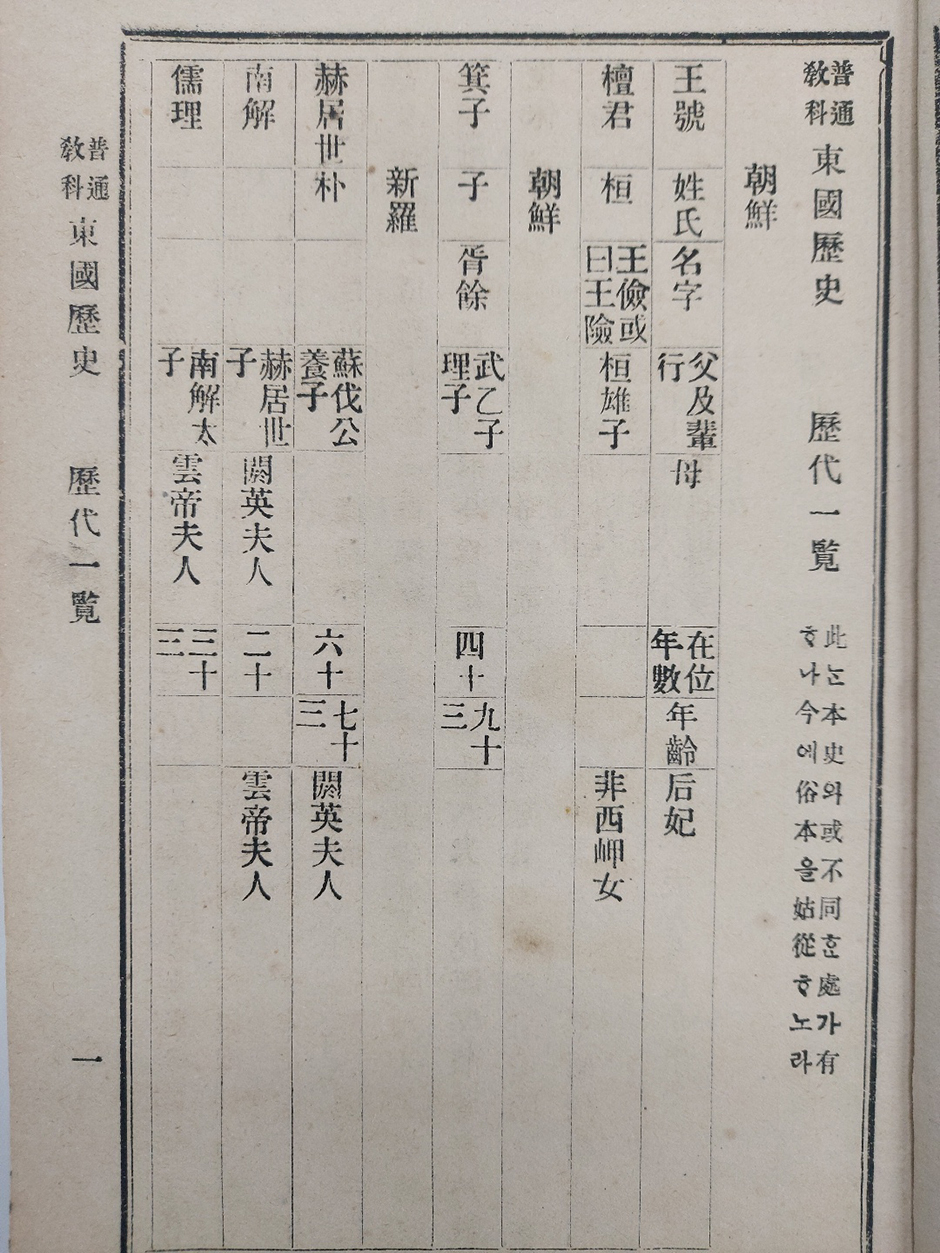 普通教科 東國歷史 歷代一覽 此는本史와或不同ᄒᆞᆫ處가有ᄒᆞ나今에俗本을姑從ᄒᆞ노라
朝鮮
王號 姓氏 名字 父及輩行 母 在位年數 年齡 后妃
檀君 桓 王儉或曰王險 桓雄子 非西岬女
朝鮮
箕子 子 胥餘 武乙子理子 四十 九十三
新羅
赫居世 朴 蘇伐公養子 六十 七十三 閼英夫人
南解 赫居世子 閼英夫人 二十 雲帝夫人
儒理 南解太子 雲帝夫人 三十三
普通教科 東國歷史 歷代一覽 一